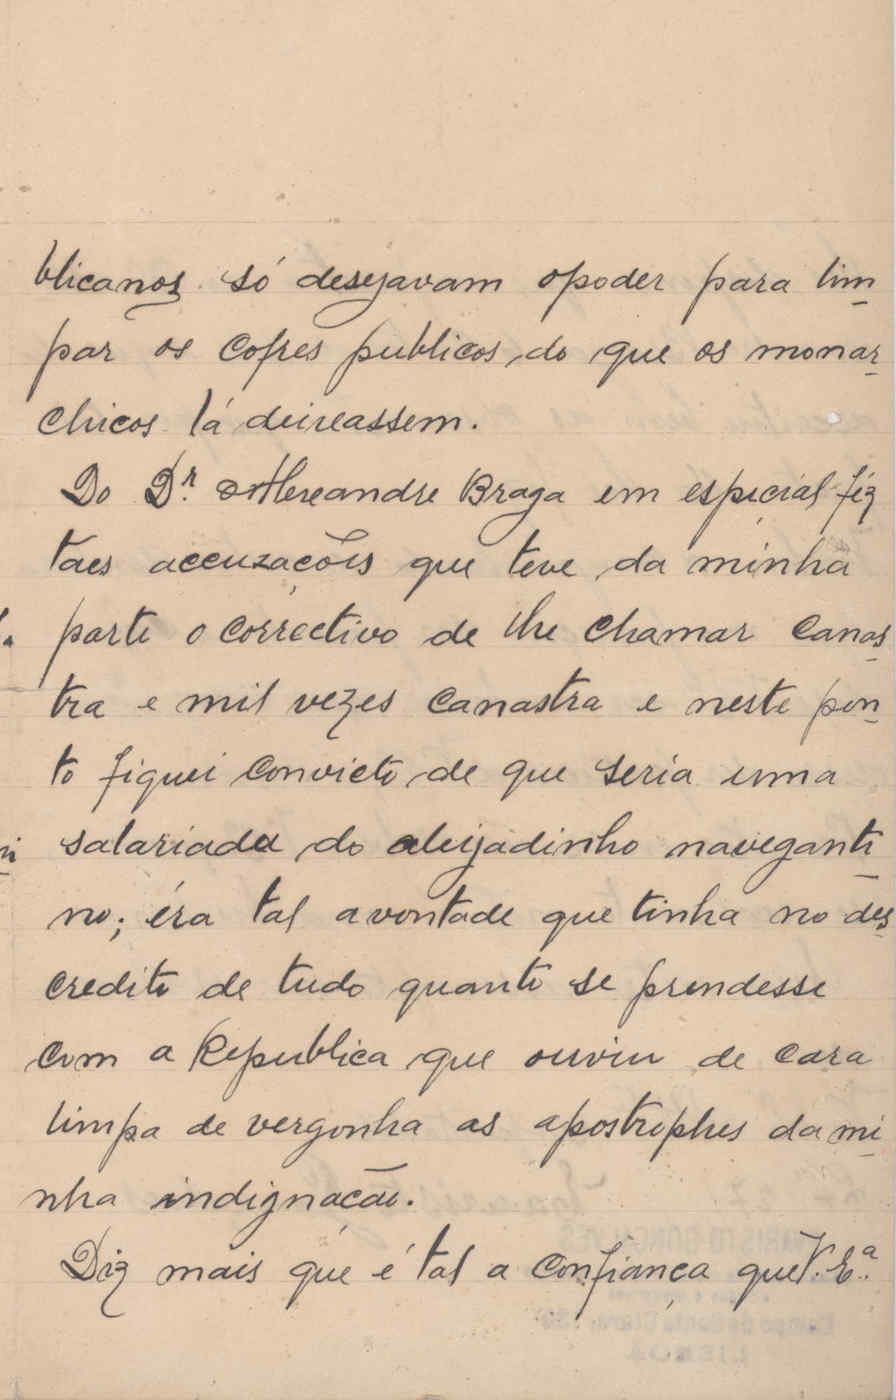 blicanos só desejavam o poder para lim
par os cofres publicos, do que os monar
chicos lá deixassem.
Do Dr. Alexandre Braga em especial fez
táes accuzações que teve da minha
parte o correctivo de lhe chamar canas
tra e mil vezes canastra e neste pon
to fiquei convicto de que seria uma
salariada do aleijadinho naveganti
no; éra tal a vontade que tinha no des
credito de tudo quanto se prendesse
com a Republica que ouviu de cara
limpa de vergonha as apostrophes da mi
nha indignacão.
Diz mais que é tal a confiança que V. Ex.ª